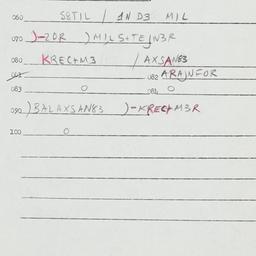 060 S8TIL / 1N D3 MIL
070 )-2DR )MILS+TEJN3R
080 KRECHM3 / AXSAN83
081 082 ARAJNFOR
083 0 084 0
090 )BALAXSAN83 )-KRECHM3R
100 0